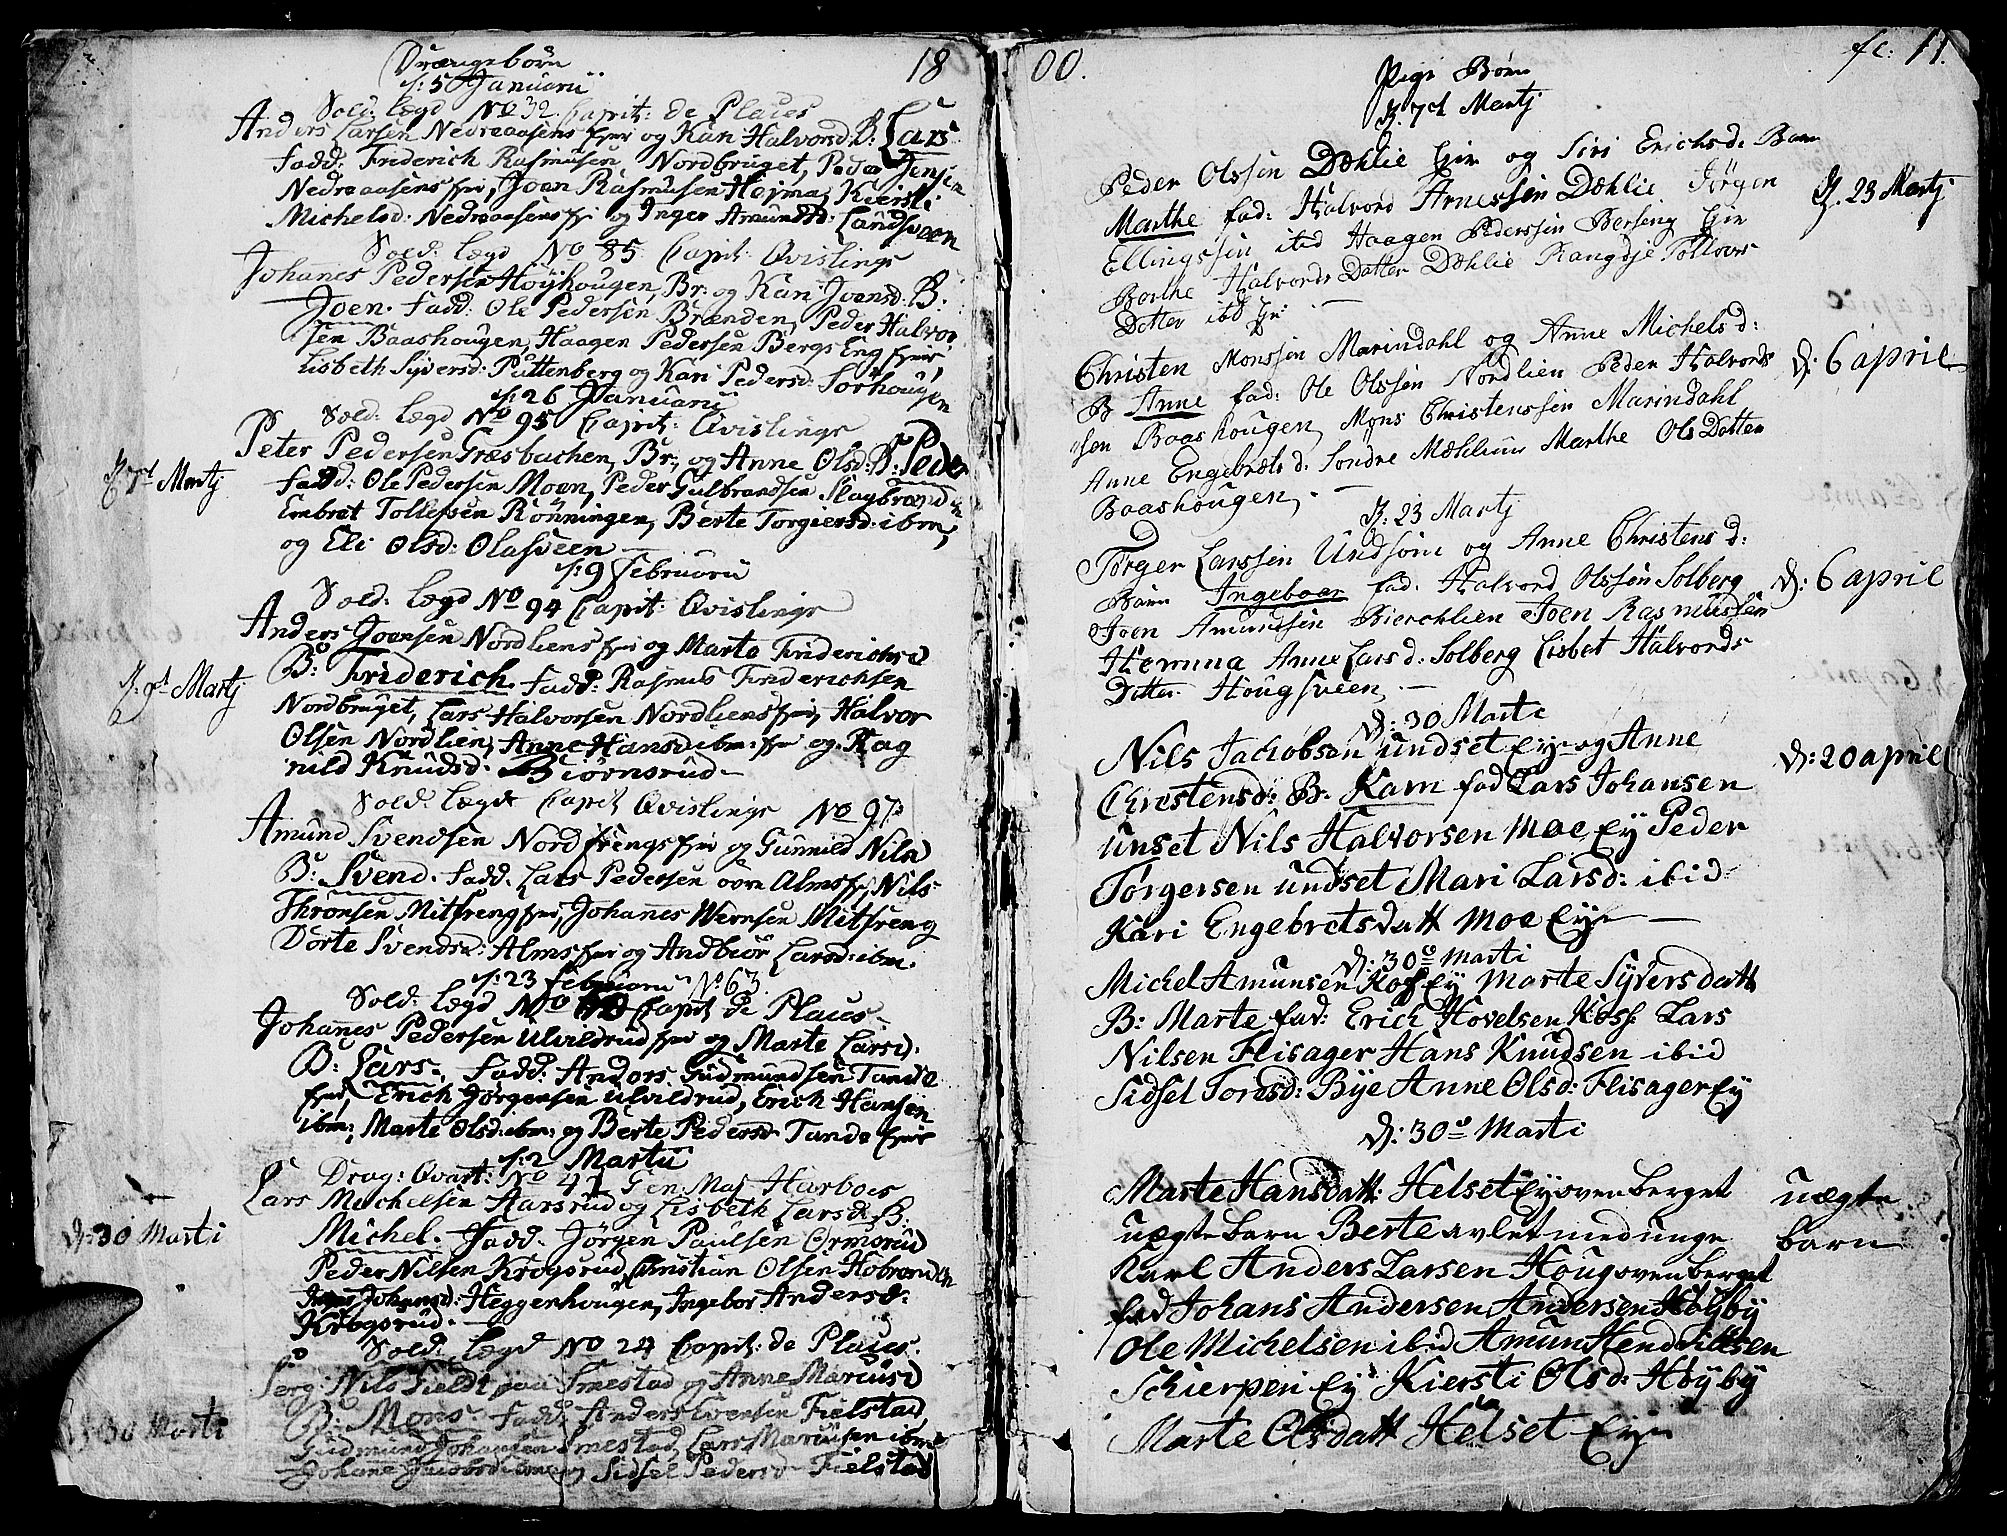 18
Drængebörn
d: 5 Januarii
Sold: Lægd No 32. Capit: de Plaues
Anders Larsen Nedreaasens Eyer og Kari Halvorsd: B: Lars
fadd: Friderich Rasmusen Nordbruget, Peder Jensen
Nedreaasens Eyer, Joen Rasmusen Hojma, Kiersti
Michelsd: Nedreaasens Eyer og Inger Amundsd: Landsveen
Sold: Lægd No 85 Capit: Qvislings
Johanes Pedersen Höyhougen, Br: og Kari Joensd: B:
Joen. Fadd: Ole Pedersen Brænden, Peder Halvor
sen Baashougen, Haagen Pedersen Bergs Eng Eyer,
Lisbeth Syversd: Puttenberg og Kari Pedersd: Sörhougen
d: 26 Januarii
Sold: Lægd No 95 Capit: Qvislings
Peter Pedersen Græsbachen, Br:, og Anne Olsd: B: Peder
d: 7de Martj
fadd: Ole Pedersen Moen, Peder Gulbrandsen Slaybrænden
Embret Tollefsen Rönningen, Berte Torgiersd: ibm,
og Eli Olsd: Olasveen
d: 9 Februarii
Sold: Lægd No 94 Capit: Qvislings
Anders Joensen Nordliens Eyer og Marte Friderichsd
d: 9de Martj
B: Friderich. Fadd: Rasmus Friderichsen
Nordbruget, Lars Halvorsen Nordliens Eyer, Halvor
Olsen Nordlien, Anne Hansd: ibm: Eyer og Rag
nild Knudsd: Biörnsrud
Sold: Lægd Capit Qvislings No 97
Amund Svendsen Nordstrengs Eyer og Gunnild Nilsd
B: Svend. Fadd. Lars Pedersen Alms Eyer, Nils
Thronsen Mitstreng Eyer, Johannes Wernsen Mitstreng
Dorte Svendsd: Alms Eyer og Andbiör Larsd: ibm.
d: 23 Februarii No 63
Sold: Lægd No Capit de Plaues
Johannes Pedersen Ulvildrud Eyer og Marte Larsd.
B: Lars. Fadd: Anders Gudmundsen Tande
Eyer, Erich Jörgensen Ulvildrud, Erich Hansen
ibm, Marte Olsd: ibm: og Berte Pedersd Tande Eyer
d: 2 Martii
Drag: Qvart: No 41 Gen: Maj Harboes
Lars Michelsen Aarsrud og Lisbeth Larsd: B:
d: 30 Marti
Michel. Fadd: Jörgen Paulsen Ormsrud
Peder Nilsen Krogsrud Christian Olsen Hobrænden
Johansd: Heggenhougen, Ingebor Andersd:
Krogsrud.
Sold: Lægd No 24 Capit: de Plaues.
Serg: Nils Fieldt paa Smestad og Anne Mariusd
d: 30 Marti
B: Mons. Fadd: Anders Svensen Fielstad
Gudmund Johansen Smestad, Lars Mariusen ibm
Johane Jacobsd: ibm og Sidsel Pedersd Fielstad
00.
fc: 11.
Pige Börn
d. 7d Martj
Peder Olssen Dæhlie Eyer og Siri Erichsd: Barn
d. 23 Martj
Marthe fad: Halvord Arnessen Dæhlie Jörgen
Ellingssen ibd Haagen Pederssen Berseng Eier
Barthe Halvords Datter Dæhlie Rangdje Tollovs
Datter ibd Ei:
Christen Monssen Marindahl og Anne Michels d:
d: 6 april
B Anne fad: Ole Olssen Nordlien Peder Halvords
sen Baashougen, Mons Christenssen Marindahl
Anne Engebrets d: Söndre Mæhlum Marthe Ols Datter
Baashougen,
d: 23 Martj
Törger Larssen Undsom og Anne Christens d:
d: 6 april
Barn Ingeboer fad: Halvord Olssen Solberg
Joen Amundsen Bierchlien Joen Rasmussen
Hemma Anne Lars d: Solberg Lisbet Halvords
Datter Hougsveen,
d: 30 Marti
Nils Jachobsen undset Eye og Anne
d: 20 april
Christensd: B: Karn fad Lars Johansen
unset Nils Halvorsen Moe Ey Peder
Törgersen undset Mari Larsd: ibid
Kari Engebretsdatt Moe Eye
d: 30 Marti
Michel Amunsen Kos Ey Marte Syversdatt
B: Marte fad: Erich Hovelsen Koss Lars
Nilsen Flisager Hans Knudsen ibid
Sidsel Toresd: Bye Anne Olsd: Flisager Ey
d: 30 Marti
Marte Hansdatt: Helset Ey ovenberget
uægte
barn
uægte barn Berte avlet med unge
Karl Anders Larsen Houg ovenberget
fad Johans Andersen Andersen Höyby
Ole Michelsen ibid Amun Hendrichsen
Schierperi Ey Kiersti Olsd: Höyby
Marte Olsdatt Helset Eye